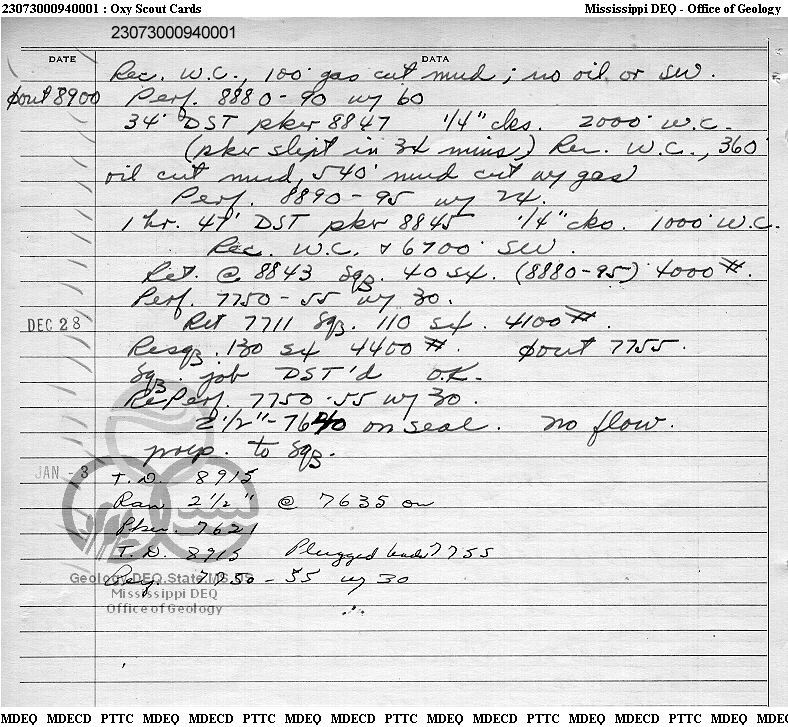 23073000940001 : Oxy Scout Cards Mississippi DEQ - Office of Geology
23073000940001
DATE DATA
Rec. W.C., 100' gas cut mud; no oil or SW.
φout 8900 Perf. 8880-90 w/ 60
34' DST pker 8847 1/4" cks. 2000' W.C.
(pker slipt in 34 mins.) Rec. W.C., 360'
oil cut mud, 540' mud cut w/ gas
Perf. 8890-95 w/ 24.
1 hr. 47' DST pker 8845 1/4" cko. 1000' W.C.
Rec. W.C. & 6700' SW.
Ret. @ 8843 Sqz. 40 sx. (8880-95) 4000#.
Perf. 7750-55 w/ 30.
DEC 28 Ret 7711 Sqz. 110 sx. 4100#.
Resqz. 130 sx 4400#. φout 7755.
Sqz. job DST'd O.K.
RePerf. 7750-55 w/ 30.
2 1/2" - 7640 on seal. no flow.
prep. to Sqz.
JAN - 3 T.D. 8915
Ran 2 1/2" @ 7635 on
Pker. 7621
T.D. 8915 Plugged back 7755
7750-55 w/ 30
Geology.DEQ.State.MS.US
Mississippi DEQ
Office of Geology
MDEQ MDECD PTTC MDEQ MDECD PTTC MDEQ MDECD PTTC MDEQ MDECD PTTC MDEQ MDECD PTTC MDEQ MDEC